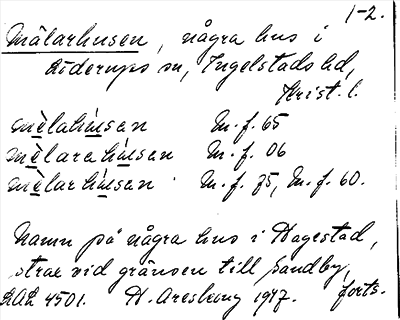 1-2.
Mälarhusen, några hus i
Löderups sn, Ingelstads hd,
Krist. l.
mèlahúsan M. f. 65
mèlarahúsan M. f. 06
mèlarhúsan M. f. 75, M. f. 60.
Namn på några hus i Hagestad,
strax vid gränsen till Sandby,
LAL 4501. H. Areskoug 1917. forts.